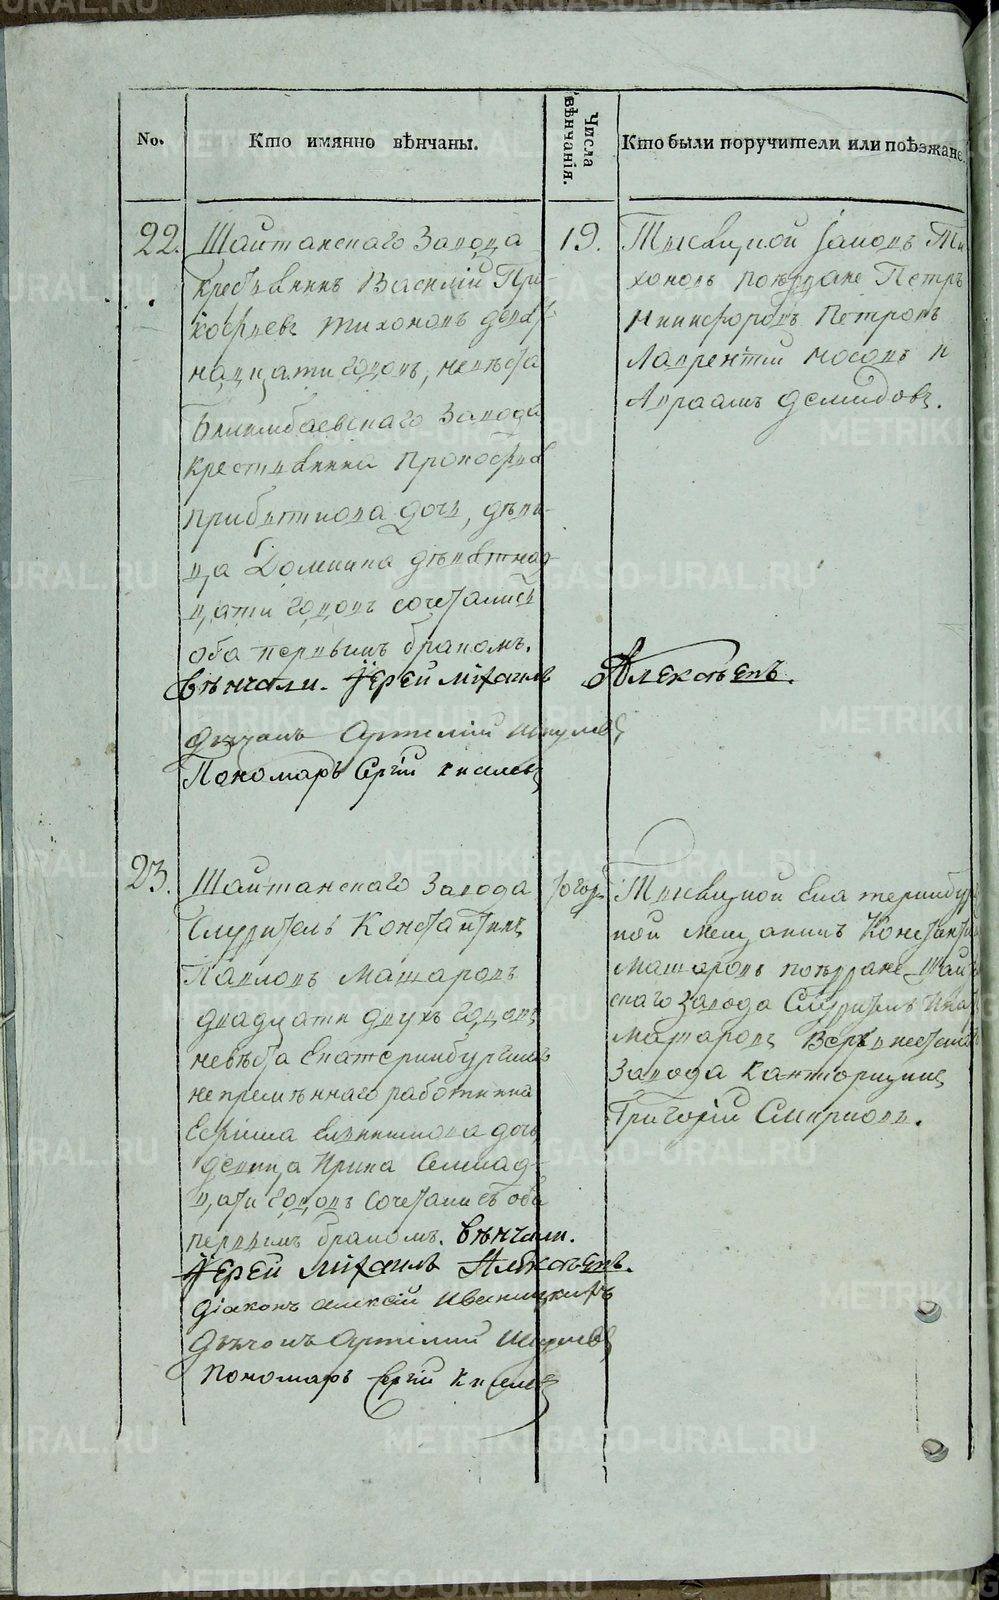 No.
Кто имянно вѣнчаны.
Числа вѣнчанія.
Кто были поручители или поѣзжане.
22.
Шайтанскаго Завода
крестьянинъ Василій Про-
кофьевъ Тихоновъ девят-
надцати годовъ, невѣста
Билимбаевскаго Завода
крестьянина Прокофья
дочь, дѣви-
ца Домнина девятнад-
цати годовъ сочетались
оба первымъ бракомъ.
Вѣнчали. Іерей Міхаилъ Алексѣевъ.
Дьячокъ Артемій
Пономарь Сергій Киселевъ
19.
Тысяцкой Іаковъ Ти-
хоновъ поѣзжане Петръ
Никифоровъ Петровъ
Лаврентій Носовъ и
Авраамъ Демидовъ.
23.
Шайтанскаго Завода
Служитель Константинъ
Павловъ Матаровъ
двадцати двухъ годовъ
невѣста Екатеринбургскаго
непремѣннаго работника
Ефима дочь
девица Ирина Семнад-
цати годовъ сочетались оба
первымъ бракомъ. Вѣнчали.
Іерей Міхаилъ Алексѣевъ.
Діаконъ Алексій
Дьячокъ Артемій
Пономарь Сергій Киселевъ
Тысяцкой Екатеринбург
кой мещанинъ Константинъ
Матаровъ поѣзжане Шайтан
скаго Завода Служитель
Матаровъ
Завода Канторщикъ
Григорій Смирновъ.
METRIKI.GASO-URAL.RU